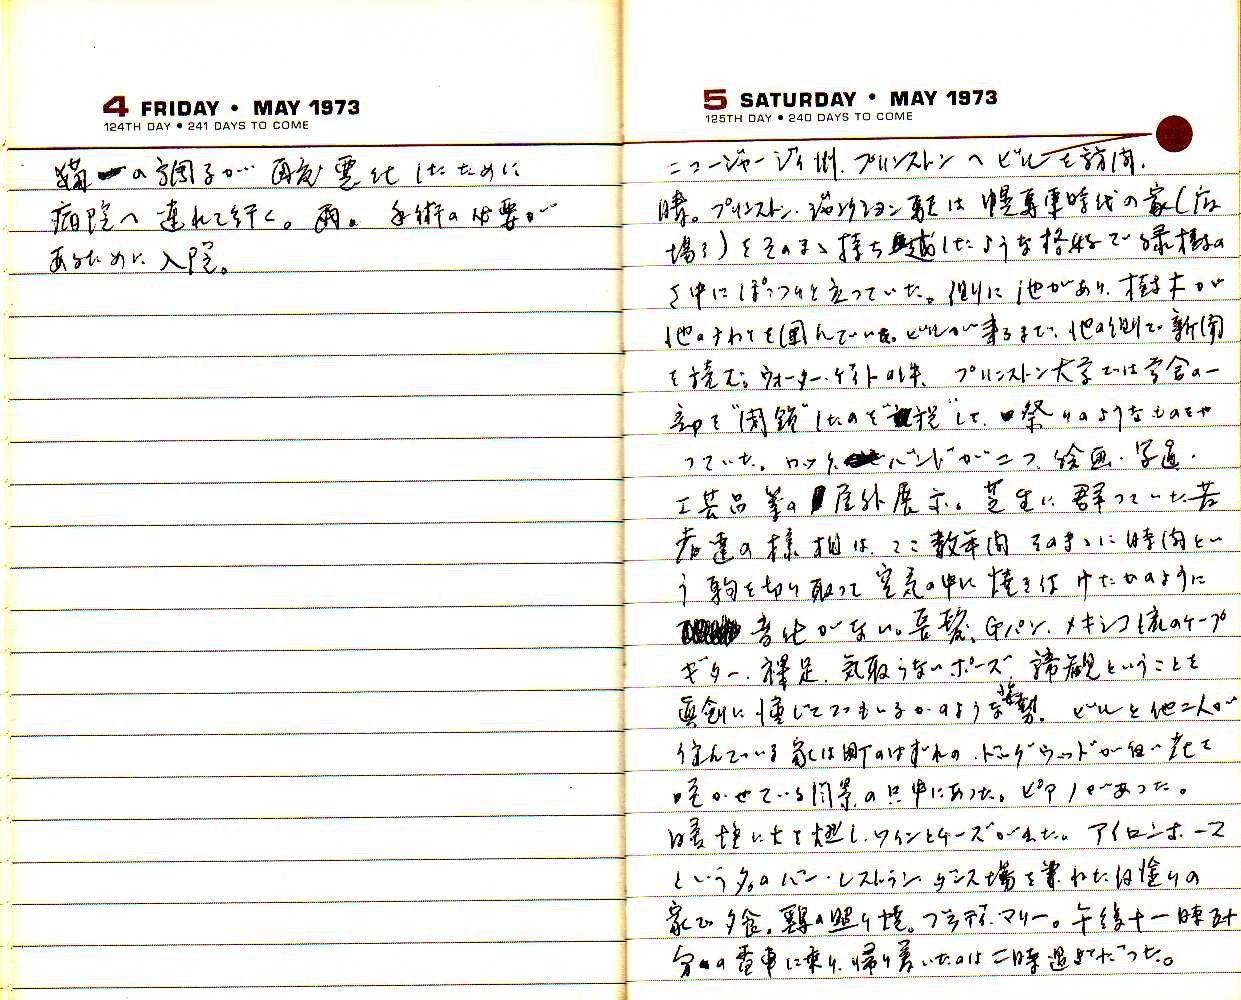 4 FRIDAY • MAY 1973
124TH DAY • 241 DAYS TO COME
猫の調子が再度悪化したために
病院へ連れて行く。雨。手術の必要が
あるために入院。
5 SATURDAY • MAY 1973
125TH DAY • 240 DAYS TO COME
ニュージャージィ州、プリンストンへビルを訪問。
晴。プリンストン・ジャンクション駅は幌馬車時代の家(居
場る)をそのまゝ持ち越したような格好で緑樹の
さ中にぽっつりと立っていた。側に池があり、樹木が
池のまわりを囲んでいた。ビルが来るまで、池の側で新聞
を読む。ウォーター・ゲイトの件、プリンストン大学では学舎の一
部を"閉鎖"したのを"祝"して、祭りのようなものをや
っていた。ロック・バンドが二つ、絵画・写真・
工芸品等の屋外展示。芝生に群っていた若
者達の様相は、ここ数年間そのまゝに時間とい
う駒を切り取って空気の中に焼き付けたかのように
変化がない。長髪、Gパン、メキシコ風のケープ
ギター、裸足、気取らないポーズ、諦観ということを
真剣に信じてでもいるかのような姿勢。ビルと他二人が
住んでいる家は町のはずれの、ドッグウッドが白い花を
咲かせている風景の只中にあった。ピアノがあった。
暖炉に火を燃し、ワインとチーズが出た。アイロンホース
という名のバー・レストラン、ダンス場を兼ねた白塗りの
家で夕食。鶏の照り焼。ブラディ・マリー。午後十一時五十
分の電車に乗り、帰り着いたのは二時過ぎだった。